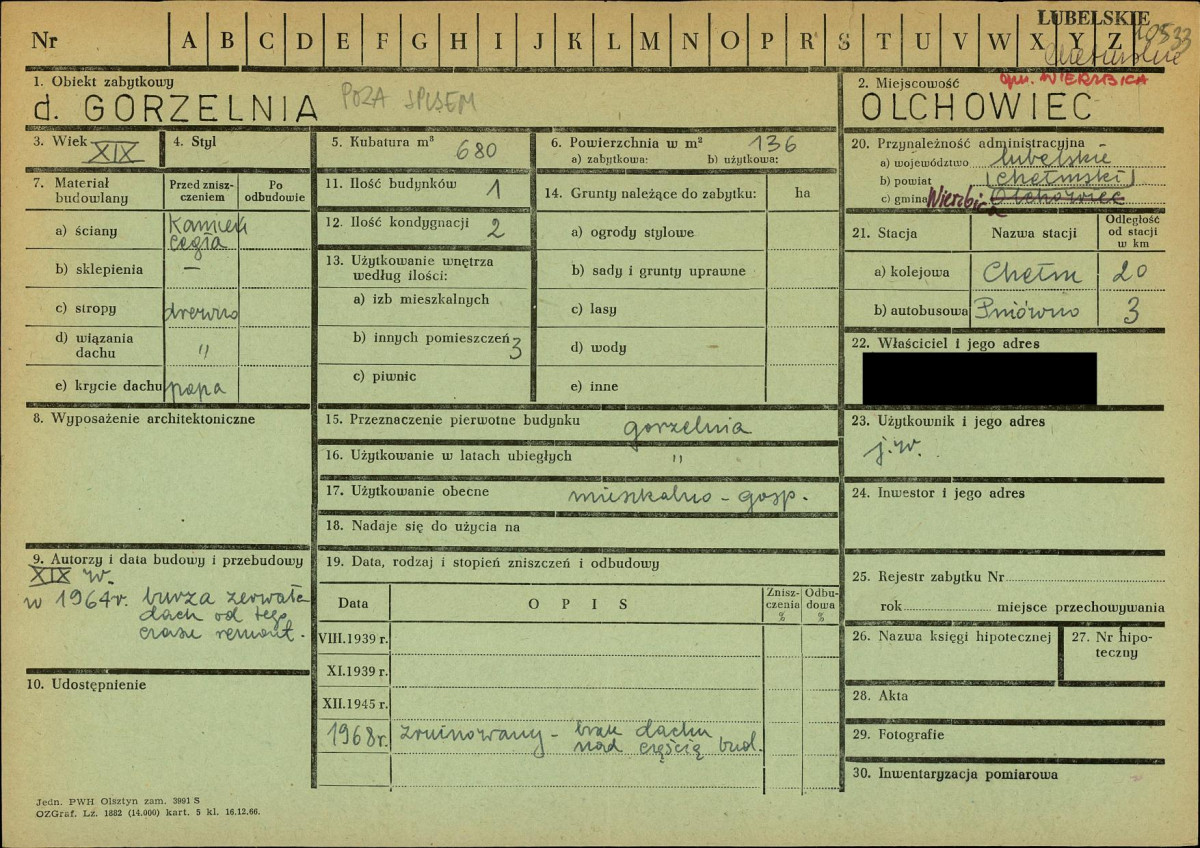 LUBELSKIE
Nr A B C D E F G H I J K L M N O P R S T U V W X Y Z
10533
gm. WIERZBICA
1. Obiekt zabytkowy
d. GORZELNIA
POZA SPISEM
2. Miejscowość
OLCHOWIEC
3. Wiek XIX
4. Styl
5. Kubatura m³ 680
6. Powierzchnia w m² 136
a) zabytkowa: b) użytkowa:
7. Materiał budowlany
Przed zniszczeniem
Po odbudowie
a) ściany Kamień cegła
b) sklepienia —
c) stropy drewno
d) wiązania dachu "
e) krycie dachu papa
8. Wyposażenie architektoniczne
9. Autorzy i data budowy i przebudowy
XIX w.
w 1964r. burza zerwała
dach od tego
czasu remont.
10. Udostępnienie
11. Ilość budynków 1
12. Ilość kondygnacji 2
13. Użytkowanie wnętrza
według ilości:
a) izb mieszkalnych
b) innych pomieszczeń 3
c) piwnic
14. Grunty należące do zabytku: ha
a) ogrody stylowe
b) sady i grunty uprawne
c) lasy
d) wody
e) inne
15. Przeznaczenie pierwotne budynku gorzelnia
16. Użytkowanie w latach ubiegłych "
17. Użytkowanie obecne mieszkalno - gosp.
18. Nadaje się do użycia na
19. Data, rodzaj i stopień zniszczeń i odbudowy
Data O P I S Zniszczenia % Odbudowa %
VIII.1939 r.
XI.1939 r.
XII.1945 r.
1968r. zrujnowany - brak dachu
nad częścią bud.
20. Przynależność administracyjna
a) województwo lubelskie
b) powiat (chełmski)
c) gmina Wierzbica Olchowiec
21. Stacja Nazwa stacji Odległość od stacji w km
a) kolejowa Chełm 20
b) autobusowa Pniówno 3
22. Właściciel i jego adres
23. Użytkownik i jego adres
j.w.
24. Inwestor i jego adres
25. Rejestr zabytku Nr
rok miejsce przechowywania
26. Nazwa księgi hipotecznej
27. Nr hipoteczny
28. Akta
29. Fotografie
30. Inwentaryzacja pomiarowa
Jedn. PWH Olsztyn zam. 3991 S
OZGraf. Lz. 1882 (14.000) kart. 5 kl. 16.12.66.